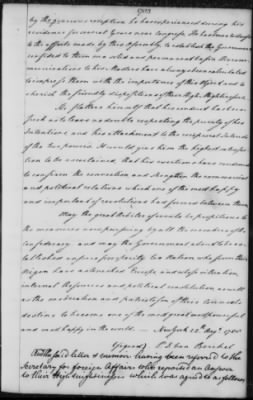 by the gracious reception he has experienced during his
residence for several years near Congress. He has seen with
to the efforts made by this Assembly, to establish the Government
confided to them on a solid and permanent basis. His com-
munications to their Masters have always been calculated
to impress them with the importance of this object and to
cherish the friendly disposition of their High Mightinesses
He flatters himself that his conduct has been
such as to leave no doubt respecting the purity of his
Intentions and his attachment to the reciprocal Interests
of the two powers. It would give him the highest satisfac-
tion to be ascertained, that his exertions have tended
to confirm the connection and strengthen the commercial
and political relations which one of the most happy
and important of revolutions has formed between them.
May the great Arbiter of events be propitious to
the measures now pursuing by all the members of the
confederacy, and may the Government about to be es-
tablished insure prosperity to a Nation who from their
Origin have astonished Europe, and whose situation
internal Resources and political constitution, as well
as the moderation and patriotism of their Councils
destine to become one of the most great and powerful
and most happy in the world. New York 12th Augt. 1788
Signed P. J. Van Berckel
And the said letter & memoir having been referred to the
Secretary for foreign Affairs who reported an Answer
to their High Mightinesses which was agreed to as follows